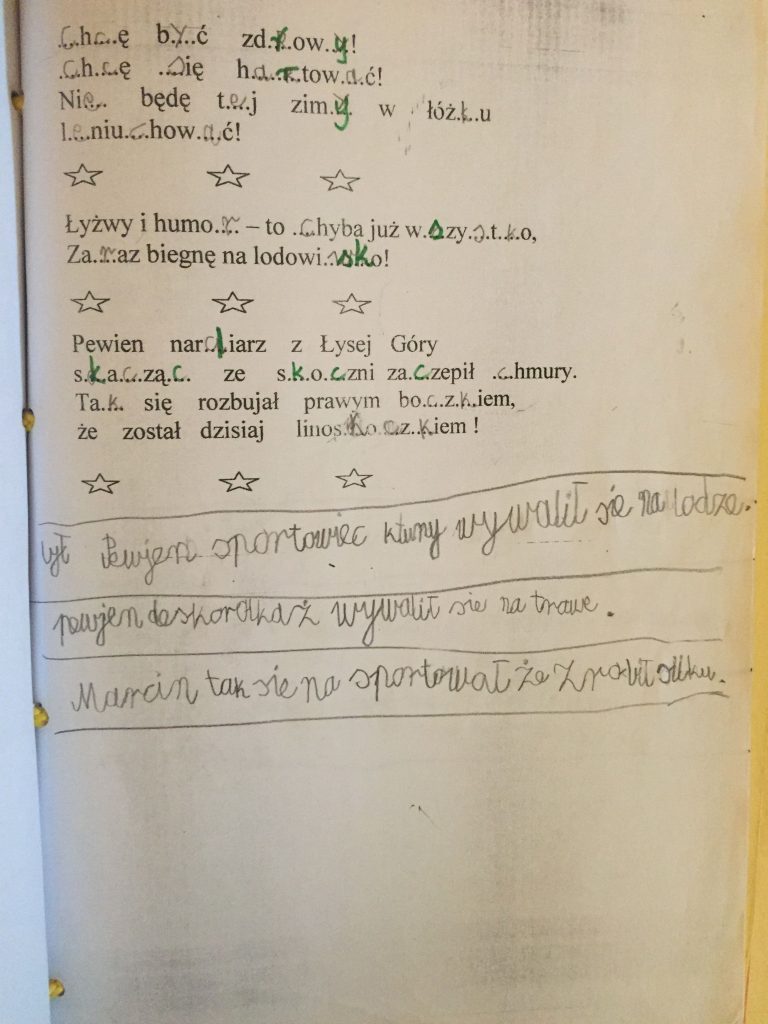 .C.h.c..ę b.y..ć zd.r.ow..y!
.C.h.c.ę ..s.ię h..a..r.tow..a..ć!
Ni.e.. będę t..e..j zim.y. w łóż.k..u
l..e..niu..c.how..a..ć!
☆ ☆ ☆
Łyżwy i humo..r.. – to ..c.hyba już w.s.zy..s.t..k.o,
Za..r..az biegnę na lodowi..sk.o!
☆ ☆ ☆
Pewien nar..c.iarz z Łysej Góry
s.k.a.c.zą.c. ze s.k.o.c.zni za.c.zepił .c.hmury.
Ta.k. się rozbujał prawym bo.c.z.k.iem,
że został dzisiaj linos.k.o.c.z..k.iem !
☆ ☆ ☆
był Pewjen sportowiec ktury wywalił sie na lodze.
pewjen deskorolkaż wywalił sie na trawe.
Marcin tak sie na sportował że zrobił siłku.